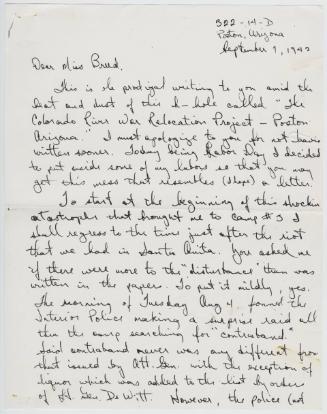 322-14-D
Poston, Arizona
September 7, 1942
Dear Miss Breed,
This is the prodigal writing to you amid the
heat and dust of this h-hole called "The
Colorado River War Relocation Project - Poston
Arizona." I must apologize to you for not havin
written sooner. Today being Labor Day I decided
to put aside some of my labors so that you may
get this mess that resembles (I hope) a letter.
To start at the beginning of this shockin
catastrophe that brought me to Camp #3 I
shall regress to the time just after the riot
that we had in Santa Anita. You asked me
if there were more to the "disturbances" than was
written in the papers. To put it mildly, yes.
The morning of Tuesday Aug 4, found the
Interior Police making a surprise raid all
thru the camp searching for "contraband."
Said contraband never was any different from
that issued by Att. Gen. with the exception of
liquor which was added to the list by order
of Lt. Gen. De Witt. However, the police (not